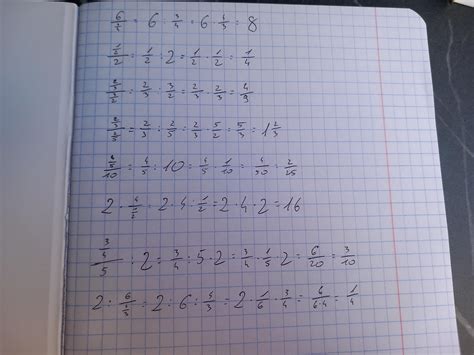 6/(3/4) = 6 : 3/4 = 6 · 4/3 = 8
(1/2)/2 = 1/2 : 2 = 1/2 · 1/2 = 1/4
(2/3)/(3/2) = 2/3 : 3/2 = 2/3 · 2/3 = 4/9
(2/3)/(2/5) = 2/3 : 2/5 = 2/3 · 5/2 = 5/3 = 1 2/3
(4/5)/10 = 4/5 : 10 = 4/5 · 1/10 = 4/50 = 2/25
2 · 4/(1/2) = 2 · 4 : 1/2 = 2 · 4 · 2 = 16
(3/4)/5 : 2 = 3/4 : 5 · 2 = 3/4 · 1/5 · 2 = 6/20 = 3/10
2 : 6/(4/3) = 2 : 6 : 4/3 = 2 · 1/6 · 3/4 = 6/(6·4) = 1/4